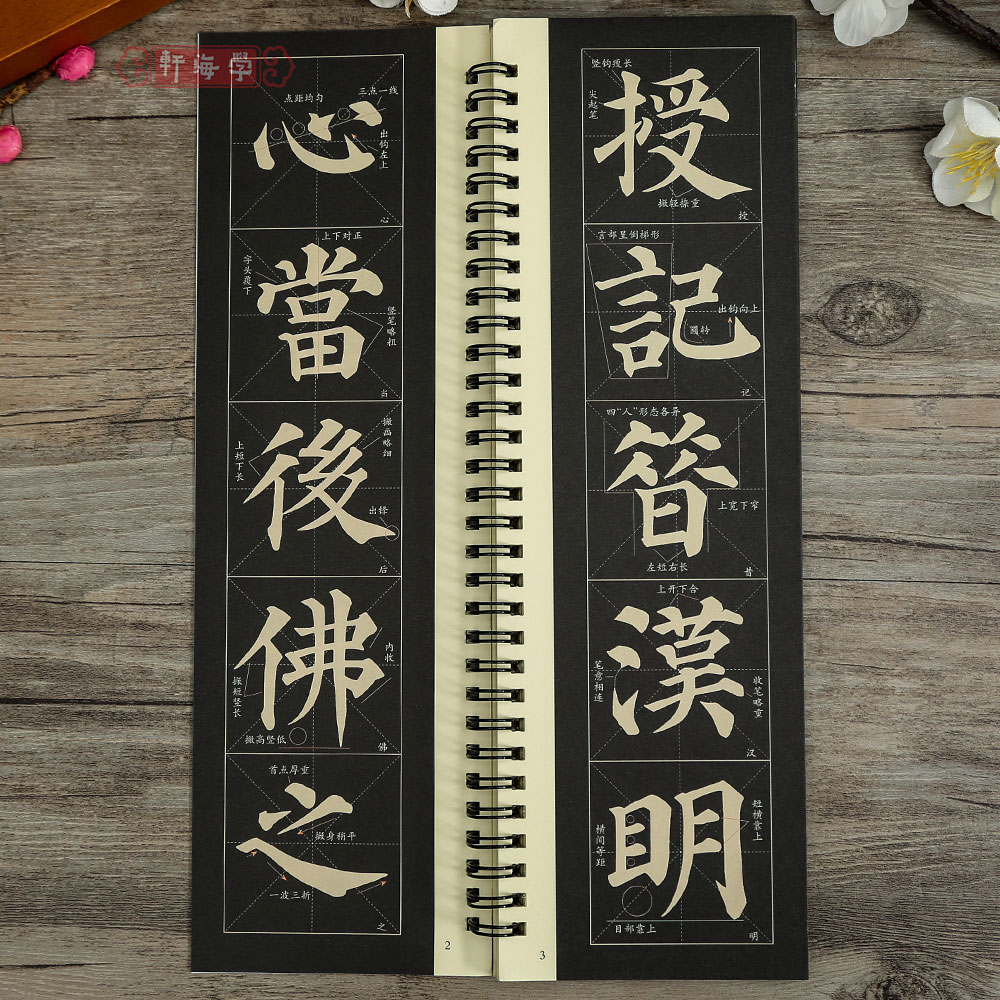 軒海学
心
点距均匀
三点一线
出钩左上
心
當
上下对正
字头覆下
竖笔略扭
当
後
撇画略细
上短下长
出锋
后
佛
内收
撇短竖长
撇高竖低
佛
之
首点厚重
撇身稍平
一波三折
之
2
授
竖钩瘦长
尖起笔
撇轻捺重
授
記
言部呈倒梯形
出钩向上
圆转
记
昝
四“人”形态各异
上宽下窄
左短右长
昔
漢
上开下合
笔意相连
收笔略重
汉
明
短横靠上
横间等距
目部靠上
明
3